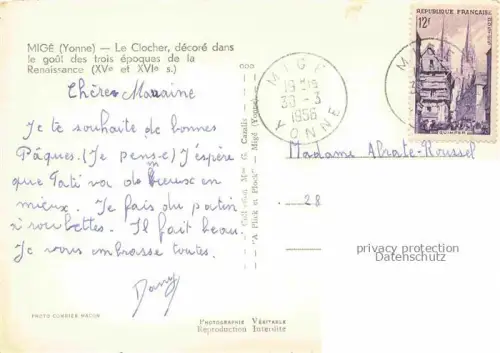 MIGÉ (Yonne) — Le Clocher, décoré dans
le goût des trois époques de la
Renaissance (XVe et XVIe s.)
Chère Maraine
Je te souhaite de bonnes
Pâques. (Je pense) J'espère
que Tati va de mieux en
mieux. Je fais du patin
à roulettes. Il fait beau.
Je vous embrasse toutes.
Dany
PHOTO COMBIER MACON
PHOTOGRAPHIE VÉRITABLE
Reproduction Interdite
Collection Mme G. Camlis
"A Plick et Plock" - Migé (Yonne)
MIGÉ
19 H 15
30-3
1956
YONNE
RÉPUBLIQUE FRANÇAISE
12F
QUIMPER
Madame Abrate-Roussel
28
privacy protection
Datenschutz